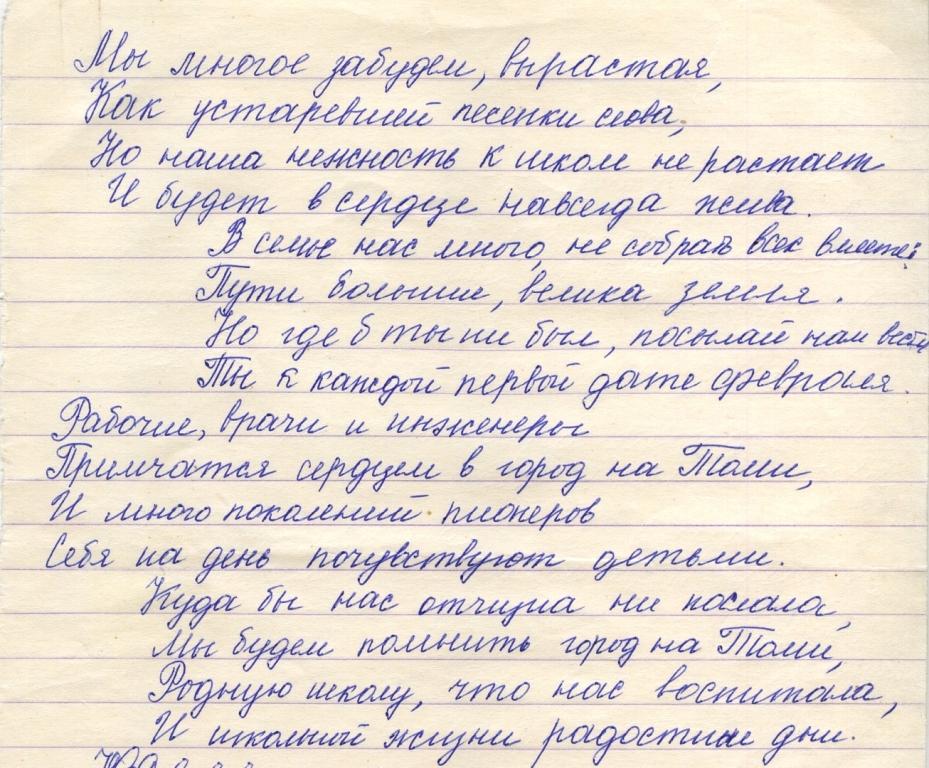 Мы многое забудем, вырастая,
Как устаревшей песенки слова,
Но наша нежность к школе не растает
И будет в сердце навсегда жива.
В семье нас много, не собрать всех вместе:
Пути большие, велика земля.
Но где б ты ни был, посылай нам вести
Ты к каждой первой дате февраля.
Рабочие, врачи и инженеры
Примчатся сердцем в город на Томи,
И много поколений пионеров
Себя на день почувствуют детьми.
Куда бы нас отчизна ни послала,
Мы будем помнить город на Томи,
Родную школу, что нас воспитала,
И школьной жизни радостные дни.